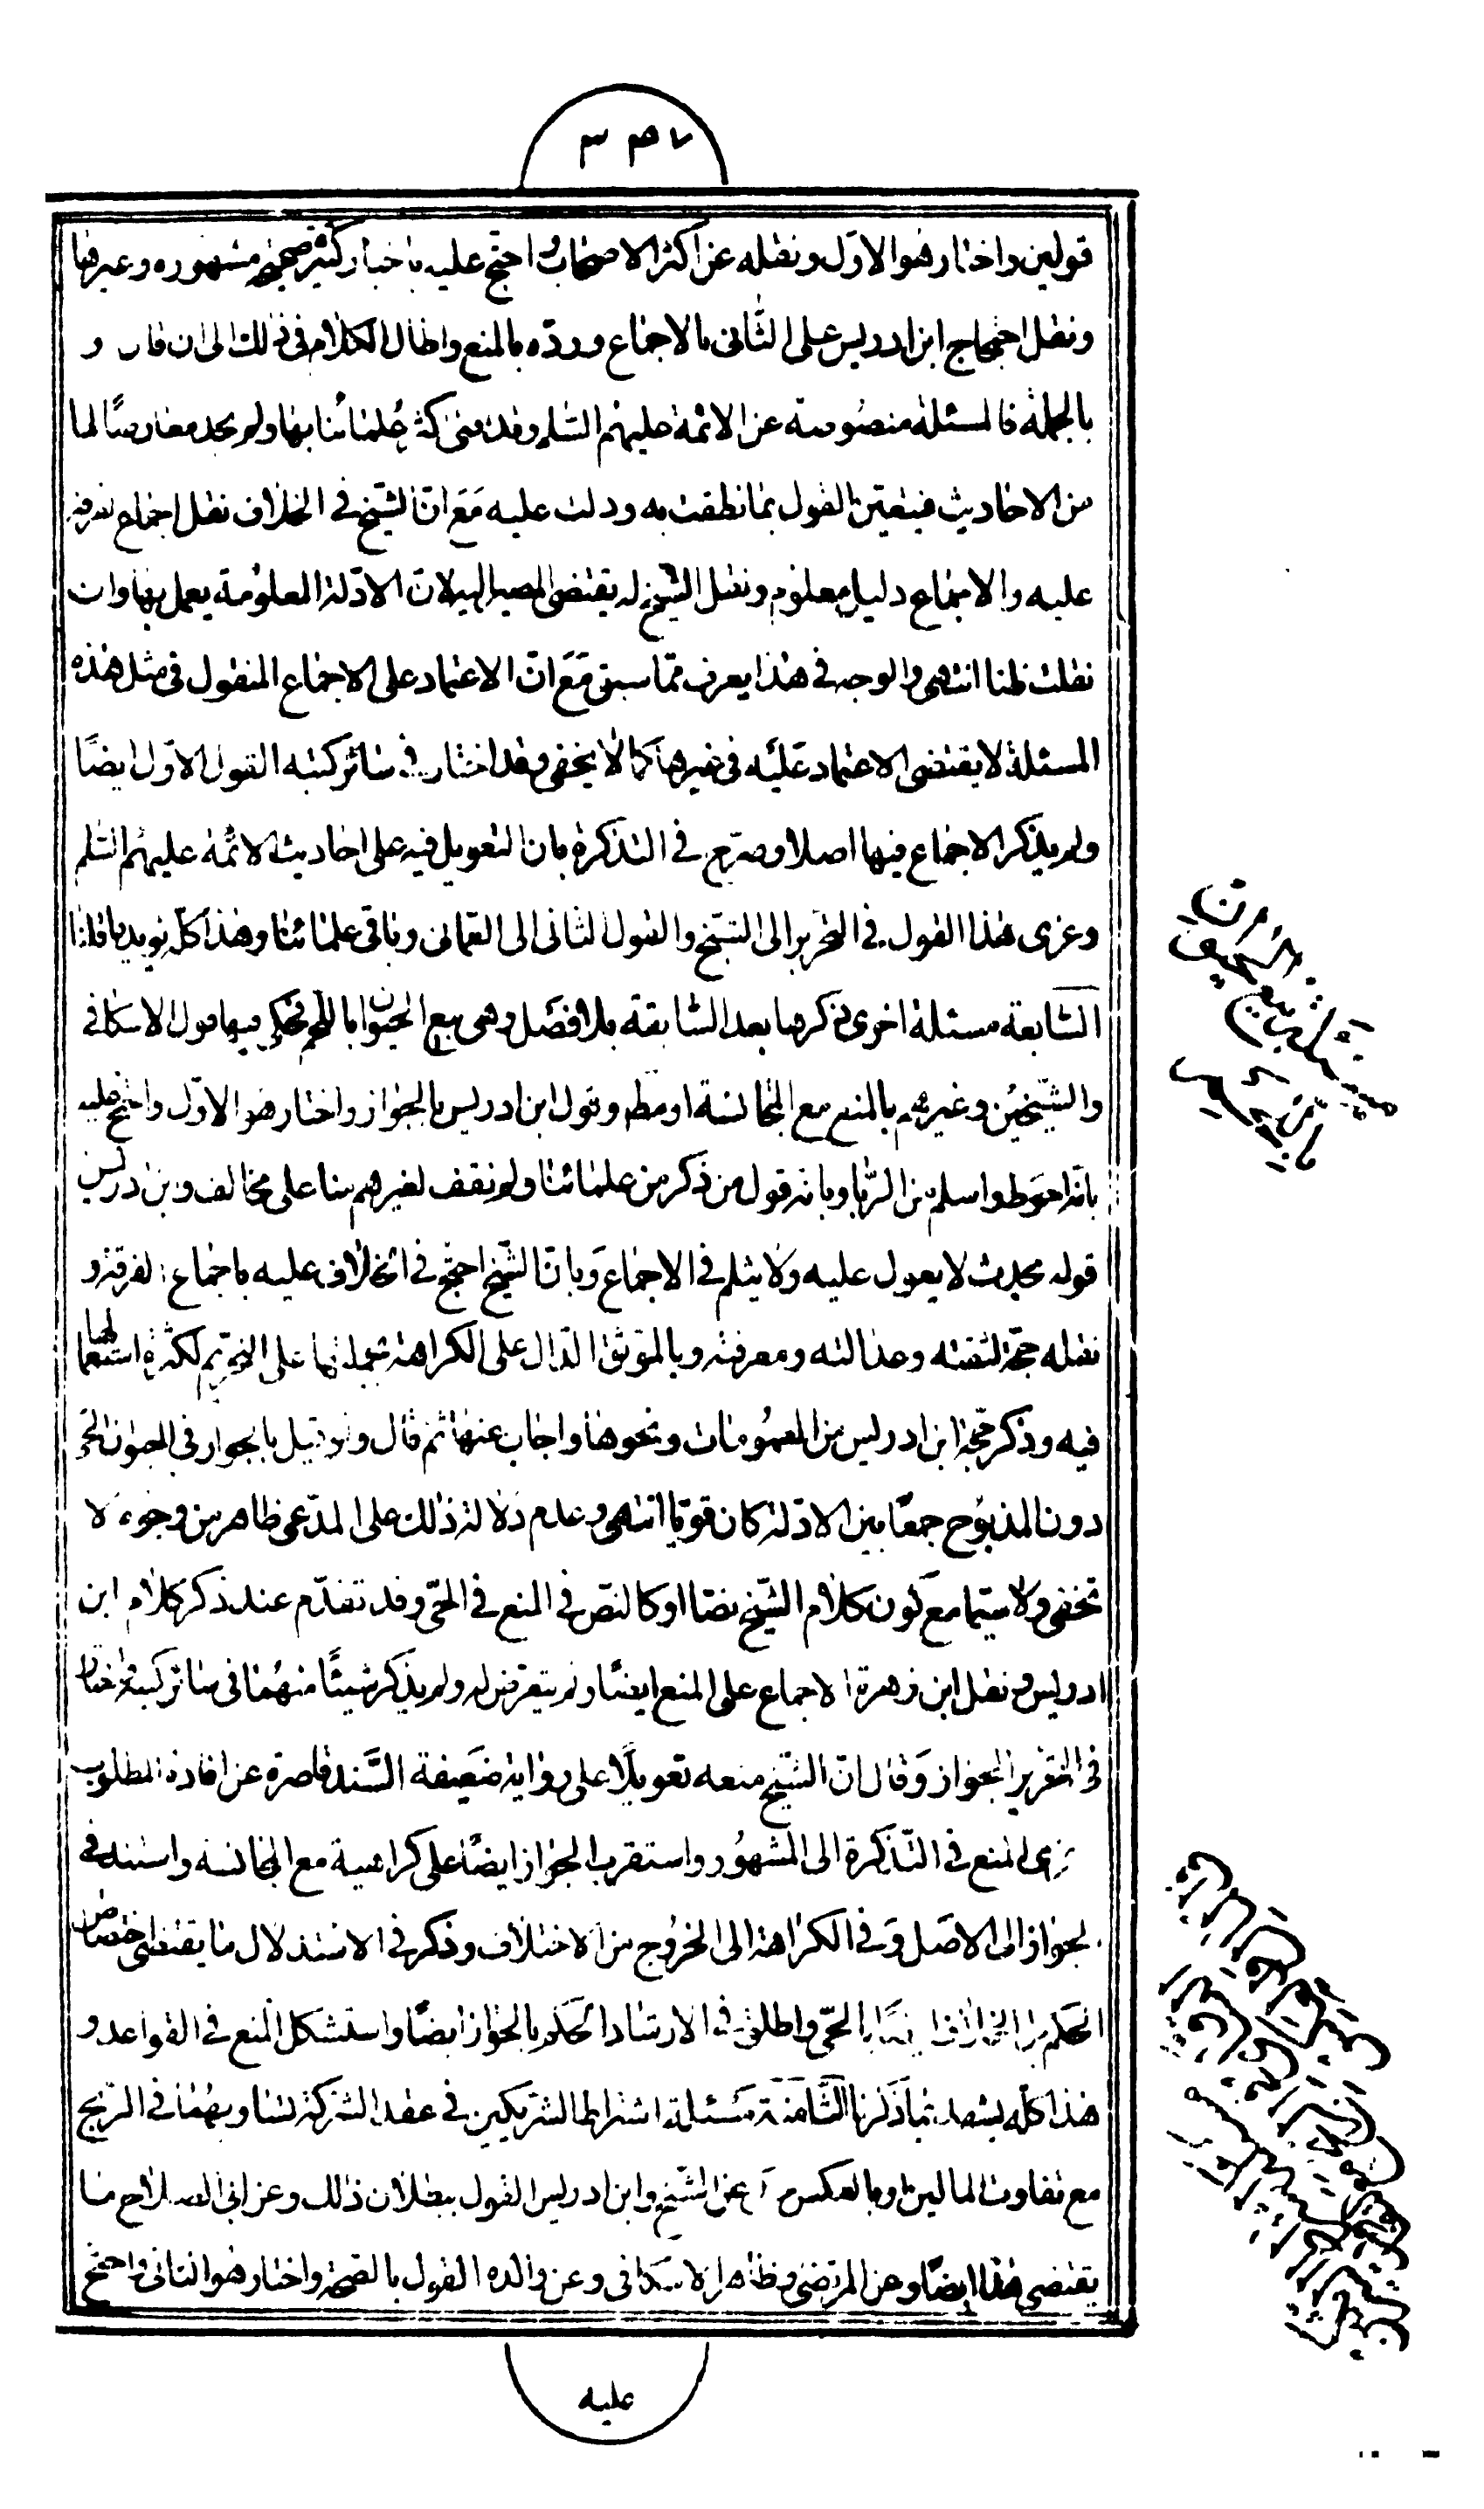 ٣٣٧
قولين واختار هو الاول ونقله عن اكثر الاصحاب واحتج عليه باخبار كثيرة صحيحة مشهوره وغيرها
ونقل احتجاج ابن ادريس على الثانى بالاجماع وردّه بالمنع واطال الكلام فى ذلك الى ان قال و
بالجملة فالمسئلة منصوصة عن الائمة عليهم السّلم وقد افتى اكثر علمائنا بها ولم نجد معارضًا لها
من الاحاديث فيتعيّن القول بما نطقت به ودلت عليه مَعَ انّ الشيخ فى الخلاف نقل اجماع الفرقة
عليه والاجماع دليل معلوم ونقل الشيخ له يقتضى المصير اليه لانّ الادّلة المعلومة يعمل بها وان
نقلت ظنا انتهى والوجه فى هذا يعرف ممّا سبق مَعَ انّ الاعتماد على الاجماع المنقول فى مثل هذه
المسئلة لا يقتضى الاعتماد عَليه فى غيرها كما لا يخفى وقد اختار فى سائر كتبه القول الاوّل ايضًا
ولم يذكر الاجماع فيها اصلا وصرّح فى التذكرة بان التعويل فيه على احاديث الائمّة عليهم السّلم
وعزى هذا القول فى التحرير الى الشيخ والقول الثانى الى العمانى وباقى علمائنا وهذا كلّه يؤيد ما قلنا
السّابعة مسئلة اخرى ذكرها بعد السّابقة بلا فصل وهى بيع الحيوان باللحم فحكى فيها قول الاسكافى
والشّيخين وغيرهم بالمنع مع المجانسة او مط وقول ابن ادريس بالجواز واختار هو الاوّل واحتج عليه
بانّه احوط واسلم من الرّبا وبانه قول من ذكر من علمائنا ولم نقف لغيرهم منا على مخالف وبن ادريس
قوله محدث لا يعول عليه ولا يثلم فى الاجماع وَبانّ الشّيخ احتج فى الخلاف عليه باجماع الفرقة و
نقله حجّة لثقته وعدالته ومعرفته وبالموثق الدّال على الكراهة بحملها على التحريم لكثرة استعمالها
فيه وذكر حجّة ابن ادريس من العمُومات ونحوها واجاب عنها ثم قال ولو قيل بالجواز فى الحيوان الحىّ
دون المذبُوح جمعًا بين الادّلة كان قويّا انتهى وعدم دلالة ذلك على المدّعى ظاهر من وجوه لا
تخفى ولا سيّما مع كون كلام الشّيخ نصّا او كالنصّ فى المنع فى الحىّ وقد تقدّم عند ذكر كلام ابن
ادريس ونقل ابن زهرة الاجماع على المنع ايضًا ولم يتعرض له ولم يذكر شيئًا منهُما فى سائر كتبه واختار
فى التحرير الجواز وَقال انّ الشّيخ منعه تعويلًا على رواية ضعيفة السَّند قاصرة عن افادة المطلوب
وعزى المنع فى التّذكرة الى المشهُور واستقرب الجواز ايضًا على كراهية مع المجانسة واستند فى
الجواز الى الاصل وَفى الكراهة الى الخرُوج من الاختلاف وذكر فى الاستدلال ما يقتضى اختصاص
الحكم بالجواز بالحىّ واطلق فى الارشاد الحكم بالجواز ايضًا واستشكل المنع فى القواعد و
هذا كلّه يشهد بما ذَكرنا الثّامنة مَسئلة اشتراط الشّريكين فى عقد الشّركة تساويهُما فى الرّبح
مع تفاوت المالين او بالعكس عن الشّيخ وابن ادريس القول ببطلان ذلك وعن ابى الصلاح ما
يقتضى هذا ايضًا وعن المرتضى وظاهر الاسكافى وعن والده القول بالصّحة واختار هو الثانى واحتج
عليه